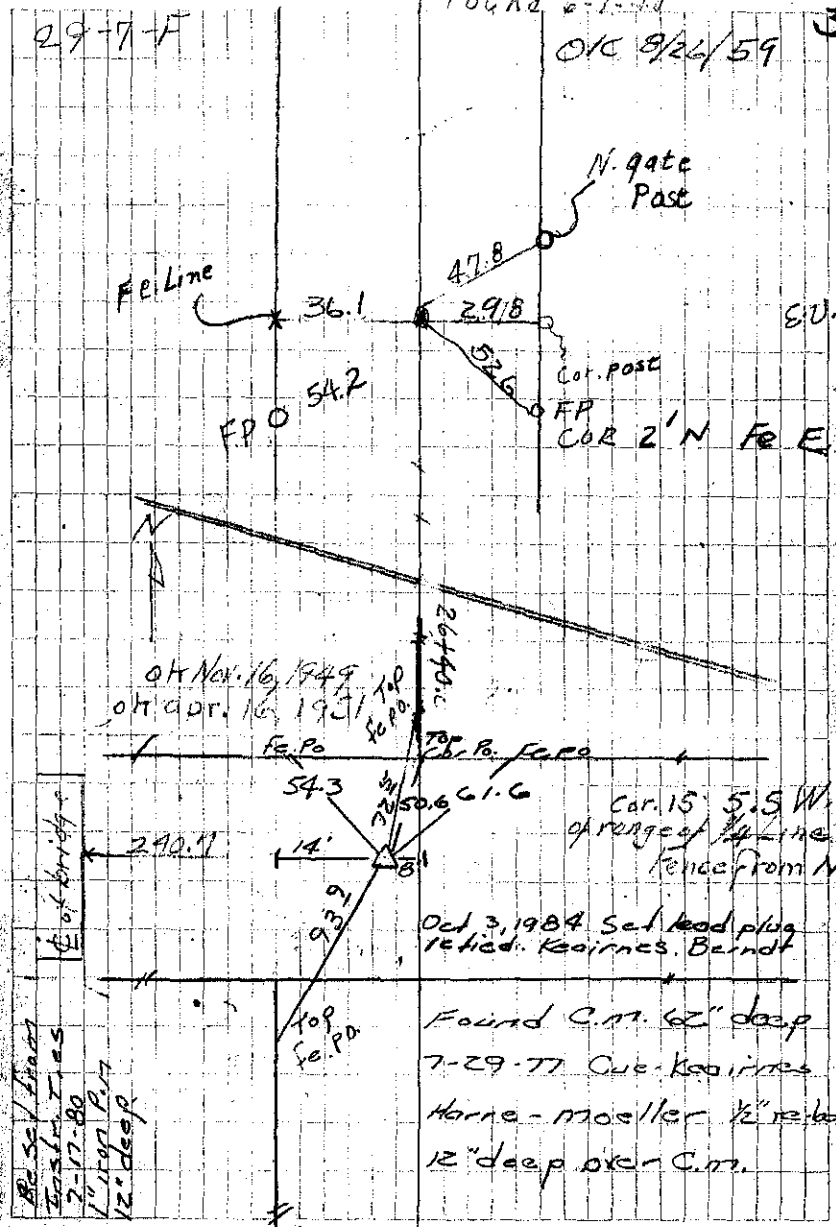 29-7-F
OK 8/26/59
N. gate
Post
47.8
Fe. Line
36.1
29.8
Cor. post
52.6
54.2
FP
FP
COR 2' N Fe E
N
26+40.
OK Nov. 16, 1949
OK apr. 16, 1951
Top
Fe. Po.
Fe. Po
Top
Cor. Po.
Fe. Po
54.3
32.5
50.6
61.6
Cor. 15 5.5 W.
of range of 1/4 Line
Fence from N
240.7
14'
8'
℄ of bridge
93.9
Oct 3, 1984 Set lead plug
retied. Keairnes. Berndt
Top
Fe. Po.
Found C.M. 62" deep
7-29-77 Cue-Keairnes
Harne-Moeller 1/2" re-ba
12" deep over C.M.
Re set from
Instm. Ties
7-17-80
1" iron Pin
12" deep